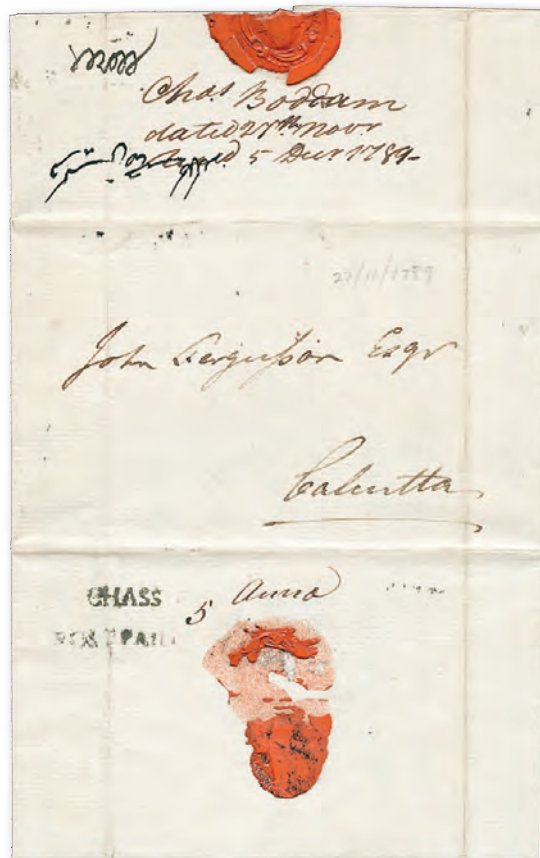 Chas Boddam
dated 27th Novr
5 Decr 1789-
27/11/1789
John Fergusson Esqr
Calcutta
5 Anna
CHASS
POST PAID